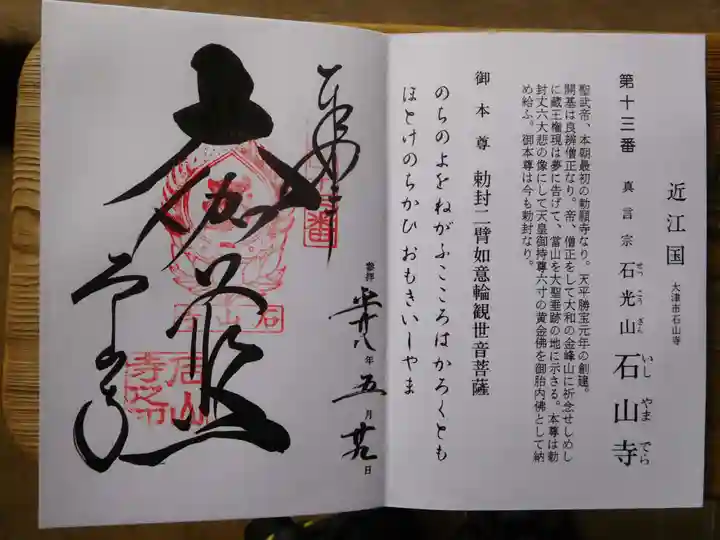 第十三番 真言宗 石光山 石山寺
せっ こう ざん
いし やま でら
近江国 大津市石山寺
聖武帝、本朝最初の勅願寺なり。天平勝宝元年の創建。
開基は良辨僧正なり。帝、僧正をして大和の金峰山に祈念せしめし
に蔵王権現は夢に告げて、當山を大聖垂跡の地に示さる。本尊は勅
封丈六大悲の像にして天皇御持尊六寸の黄金佛を御胎内佛として納
め給ふ。御本尊は今も勅封なり。
御本尊 勅封二臂如意輪観世音菩薩
のちのよをねがふこころはかろくとも
ほとけのちかひおもきいしやま
奉拝
大伽藍
石山寺
石山寺
石山寺之印
参拝 平廿八年 五月 廿九日